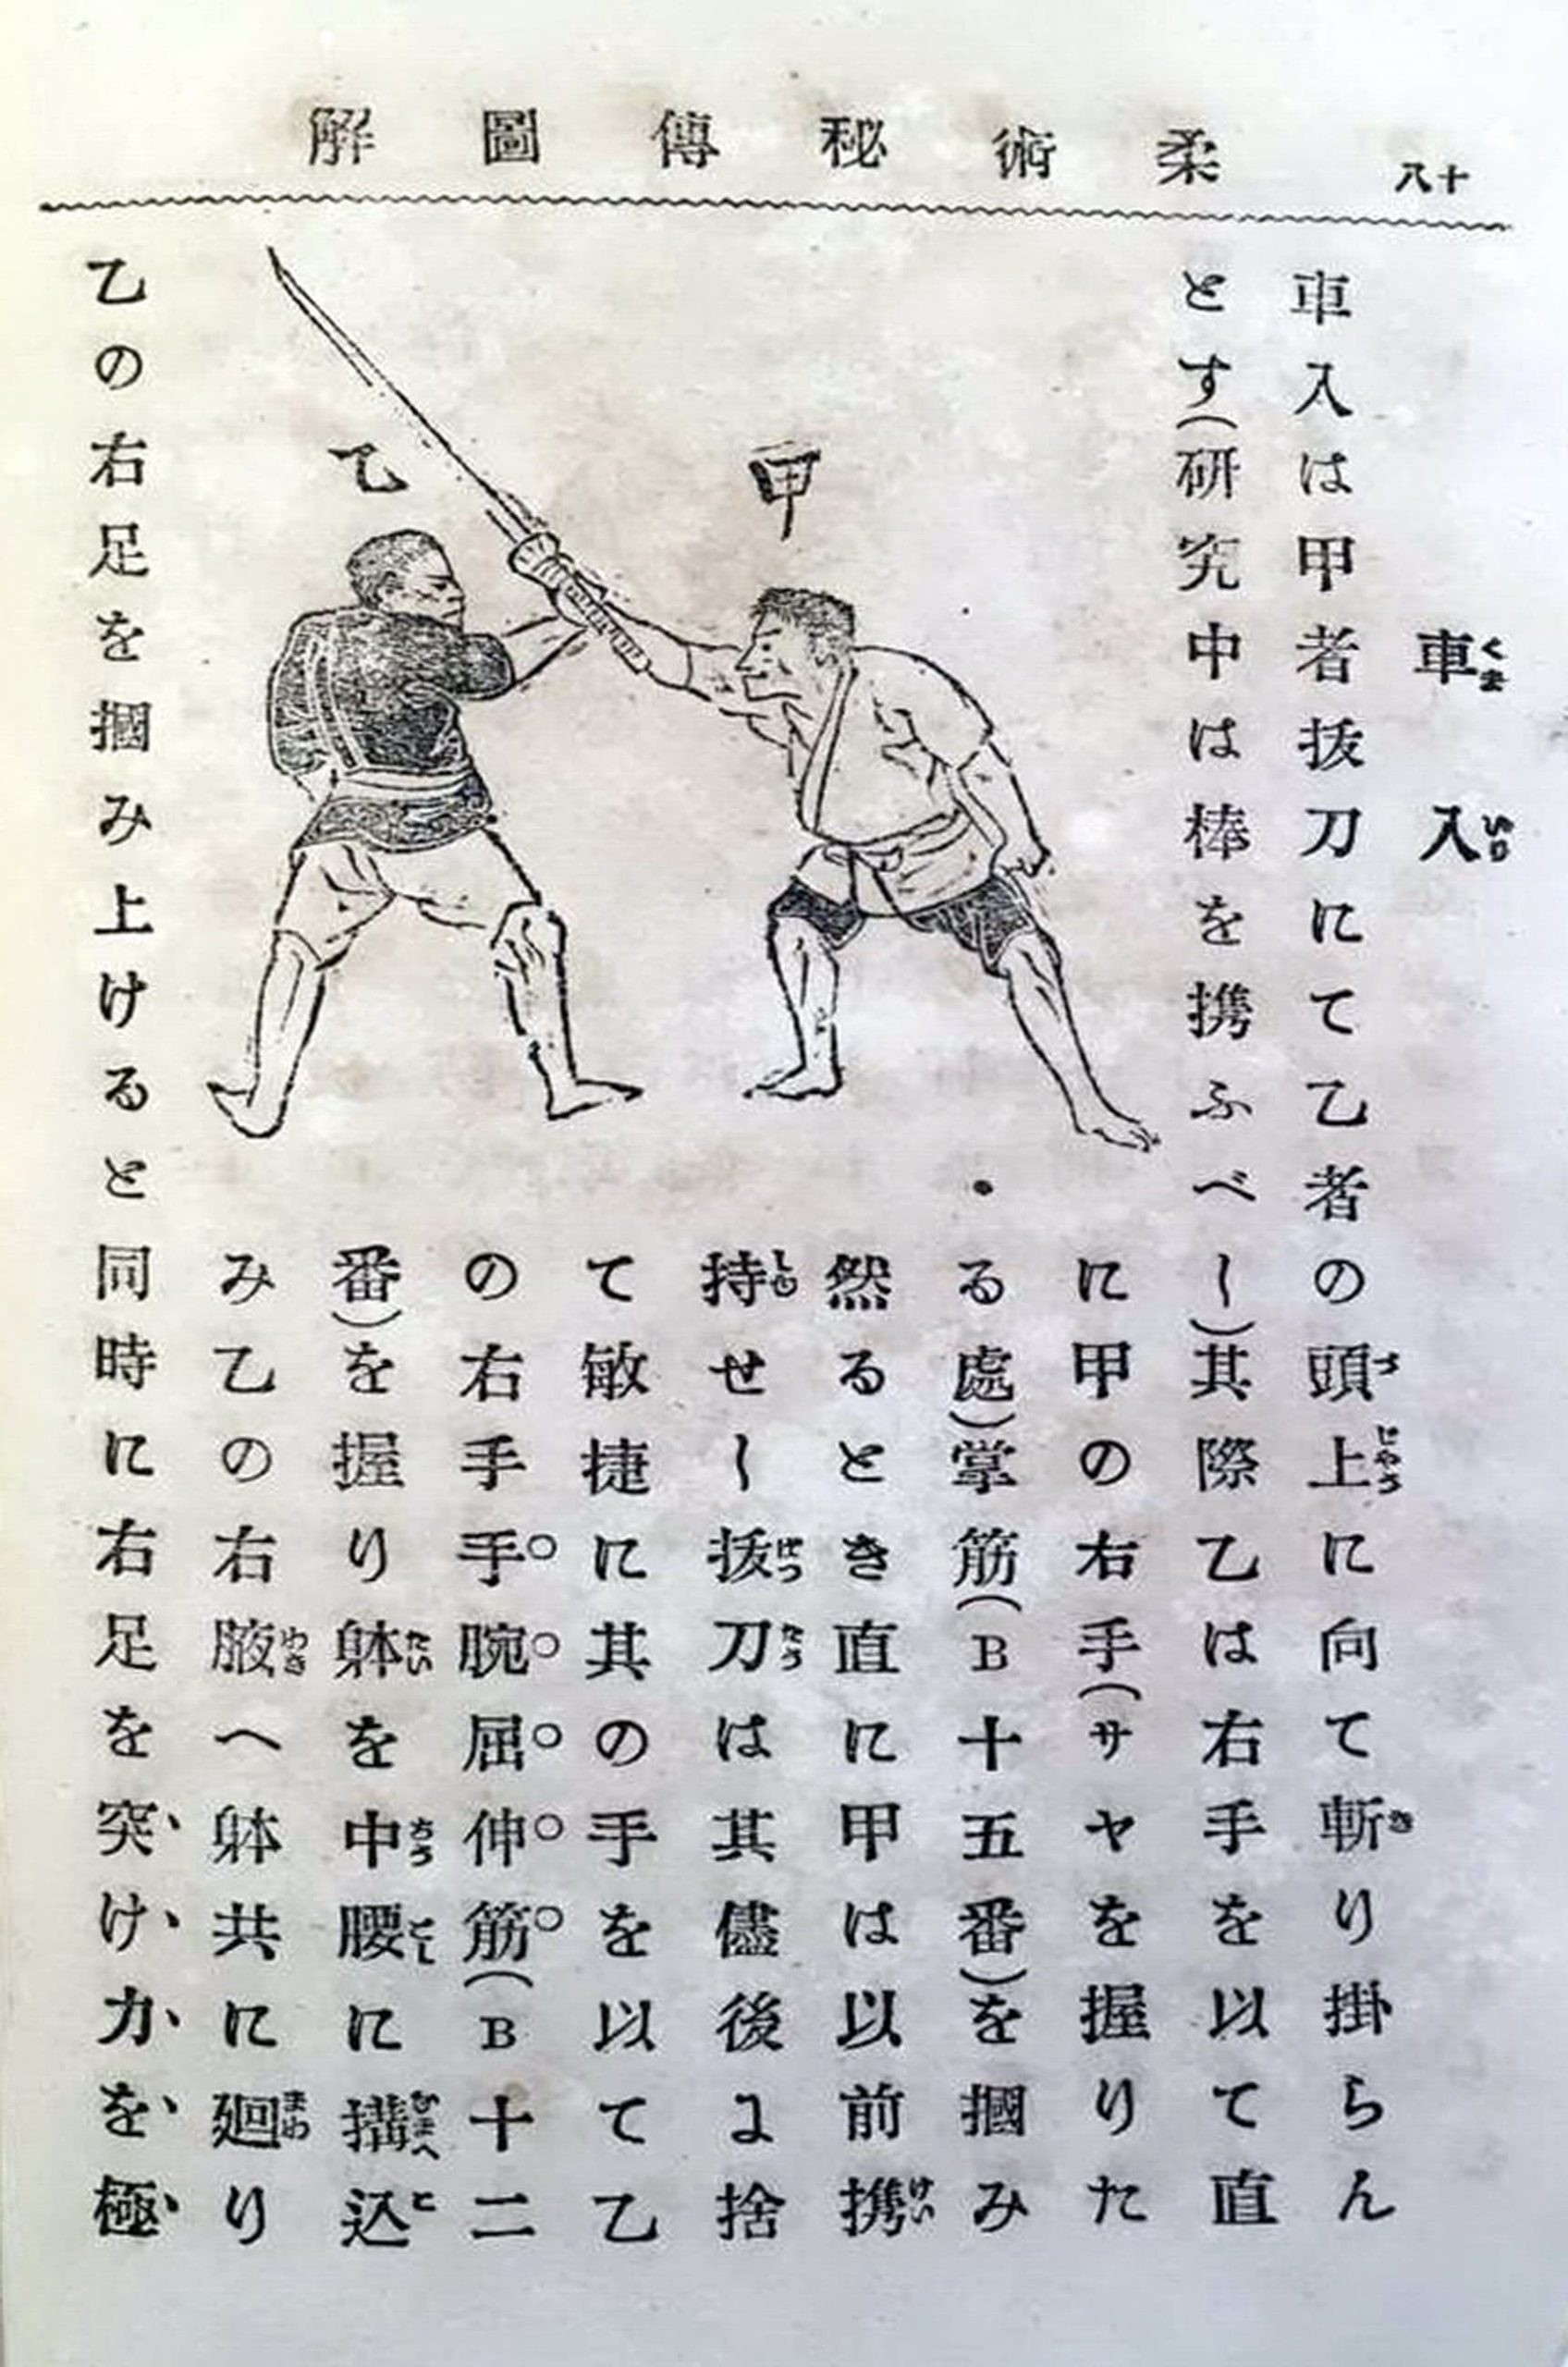 十八
柔術秘傳圖解
車入
くま いり
車入は甲者抜刀にて乙者の頭上に向て斬り掛らん
づ じやう き
とす(研究中は棒を携ふべし)其際乙は右手を以て直
に甲の右手(サヤを握りた
る處)掌筋(B十五番)を摑み
然るとき直に甲は以前携
けい
持せし抜刀は其儘後よ捨
じ ばつ たう
て敏捷に其の手を以て乙
の右手手腕屈伸筋(B十二
番)を握り躰を中腰に搆込
たい ちう ごし かまへ こ
み乙の右腋へ躰共に廻り
わき まわ
乙の右足を摑み上けると同時に右足を突け力を極
甲
乙